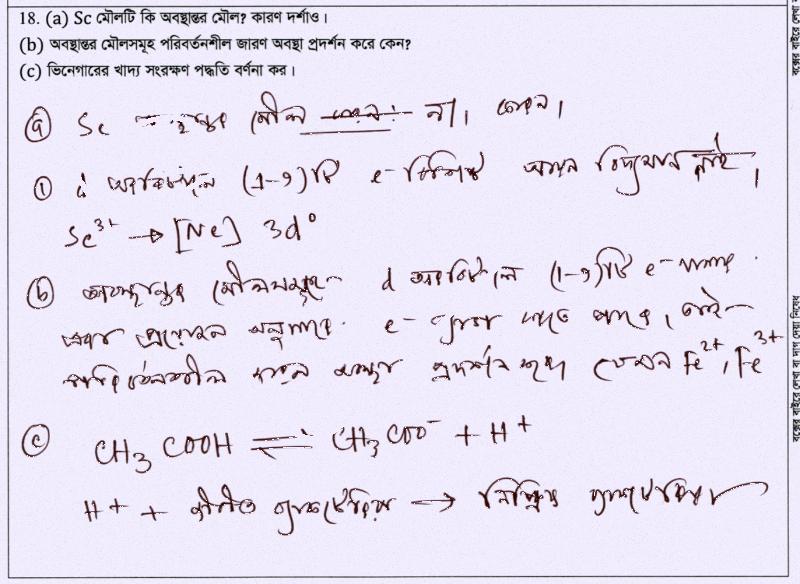 18. (a) Sc মৌলটি কি অবস্থান্তর মৌল? কারণ দর্শাও।
(b) অবস্থান্তর মৌলসমূহ পরিবর্তনশীল জারণ অবস্থা প্রদর্শন করে কেন?
(c) ভিনেগারের খাদ্য সংরক্ষণ পদ্ধতি বর্ণনা কর।
(a) Sc মৌল না।
(1) d অরবিটালে (1-9)টি e- বিশিষ্ট আয়ন বিদ্যমান নাই।
Sc³⁺ → [Ne] 3d⁰
(b) অবস্থান্তর মৌলসমূহ d অরবিটালে (1-9)টি e⁻ থাকে
এরা প্রয়োজন অনুসারে e- ত্যাগ করতে পারে, তাই
পরিবর্তনশীল জারন অবস্থা প্রদর্শন করে যেমন Fe²⁺, Fe³⁺
(c) CH₃COOH ⇌ CH₃COO⁻ + H+
H+ + জীবিত ব্যাকটেরিয়া → নিষ্ক্রিয় ব্যাকটেরিয়া
বক্সের বাইরে লেখা বা দাগ দেয়া নিষেধ